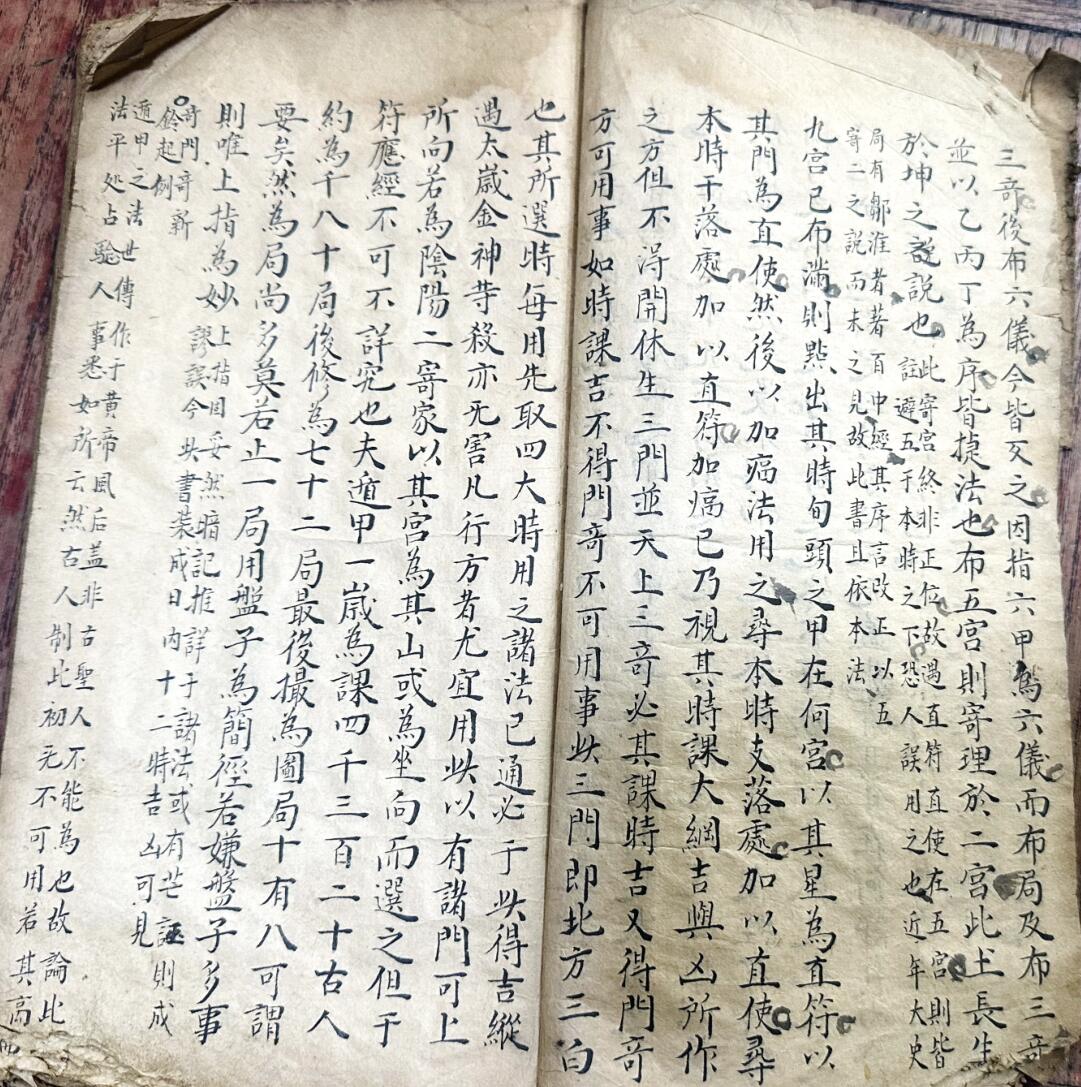 三竒後布六儀今皆反之因指六甲為六儀而布局及布三竒
並以乙丙丁為序皆捷法也布五宫則寄理於二宫此土長生
於坤之說也
此寄宫終非正位故遇直符直使在五宫則皆
註避五于本時之下恐人誤用之也近年大史
局有鄒淮者著百中經其序言改正以五
寄二之説而未之見故此書且依本法
九宫已布滿則㸃出其時旬頭之甲在何宫以其星為直符以
其門為直使然後以加臨法用之尋本時支落處加以直使尋
本時干落處加以直符加臨已乃視其時課大綱吉與凶所作
之方但不淂開休生三門並天上三竒必其課時吉又得門竒
方可用事如時課吉不得門竒不可用事此三門即北方三白
也其所選時每用先取四大時用之諸法已通必于此得吉縱
遇太歲金神等殺亦无害凡行方者尤宜用此以有諸門可上
所向若為陰陽二寄家以其宫為其山或為坐向而選之但于
符應經不可不詳究也夫遁甲一歲為課四千三百二十古人
約為千八十局後修為七十二局最後撮為圖局十有八可謂
要矣然為局尚多莫若止一局用盤子為簡徑若嫌盤子多事
則唯上指為妙
上指固妥然暗記推詳于諸法或有芒誤則成
謬誤今此書装成日内十二時吉凶可見
竒門竒新
鈴起例
遁甲之法世傳作于黄帝風后盖非古聖人不能為也故論此
法平处占驗人事悉如所云然古人制此初无不可用若其高